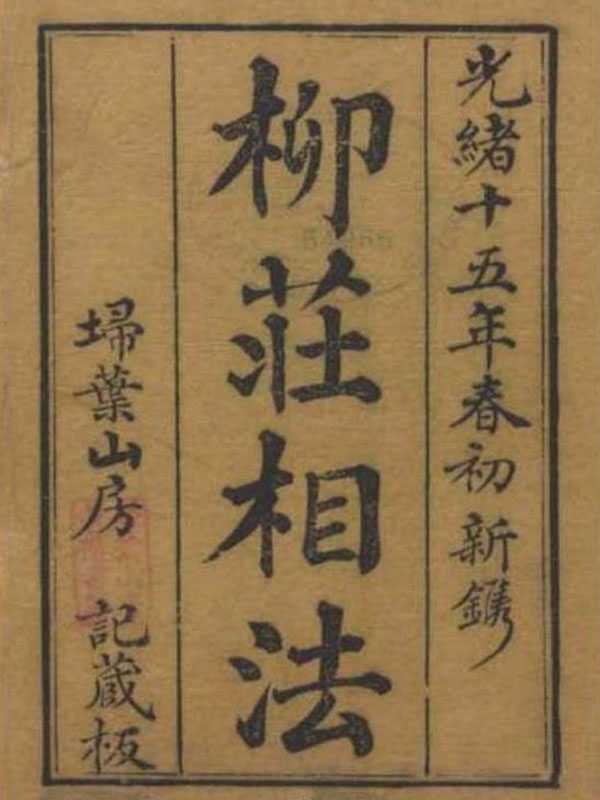 光緒十五年春初新鐫
柳莊相法
埽葉山房記蔵板